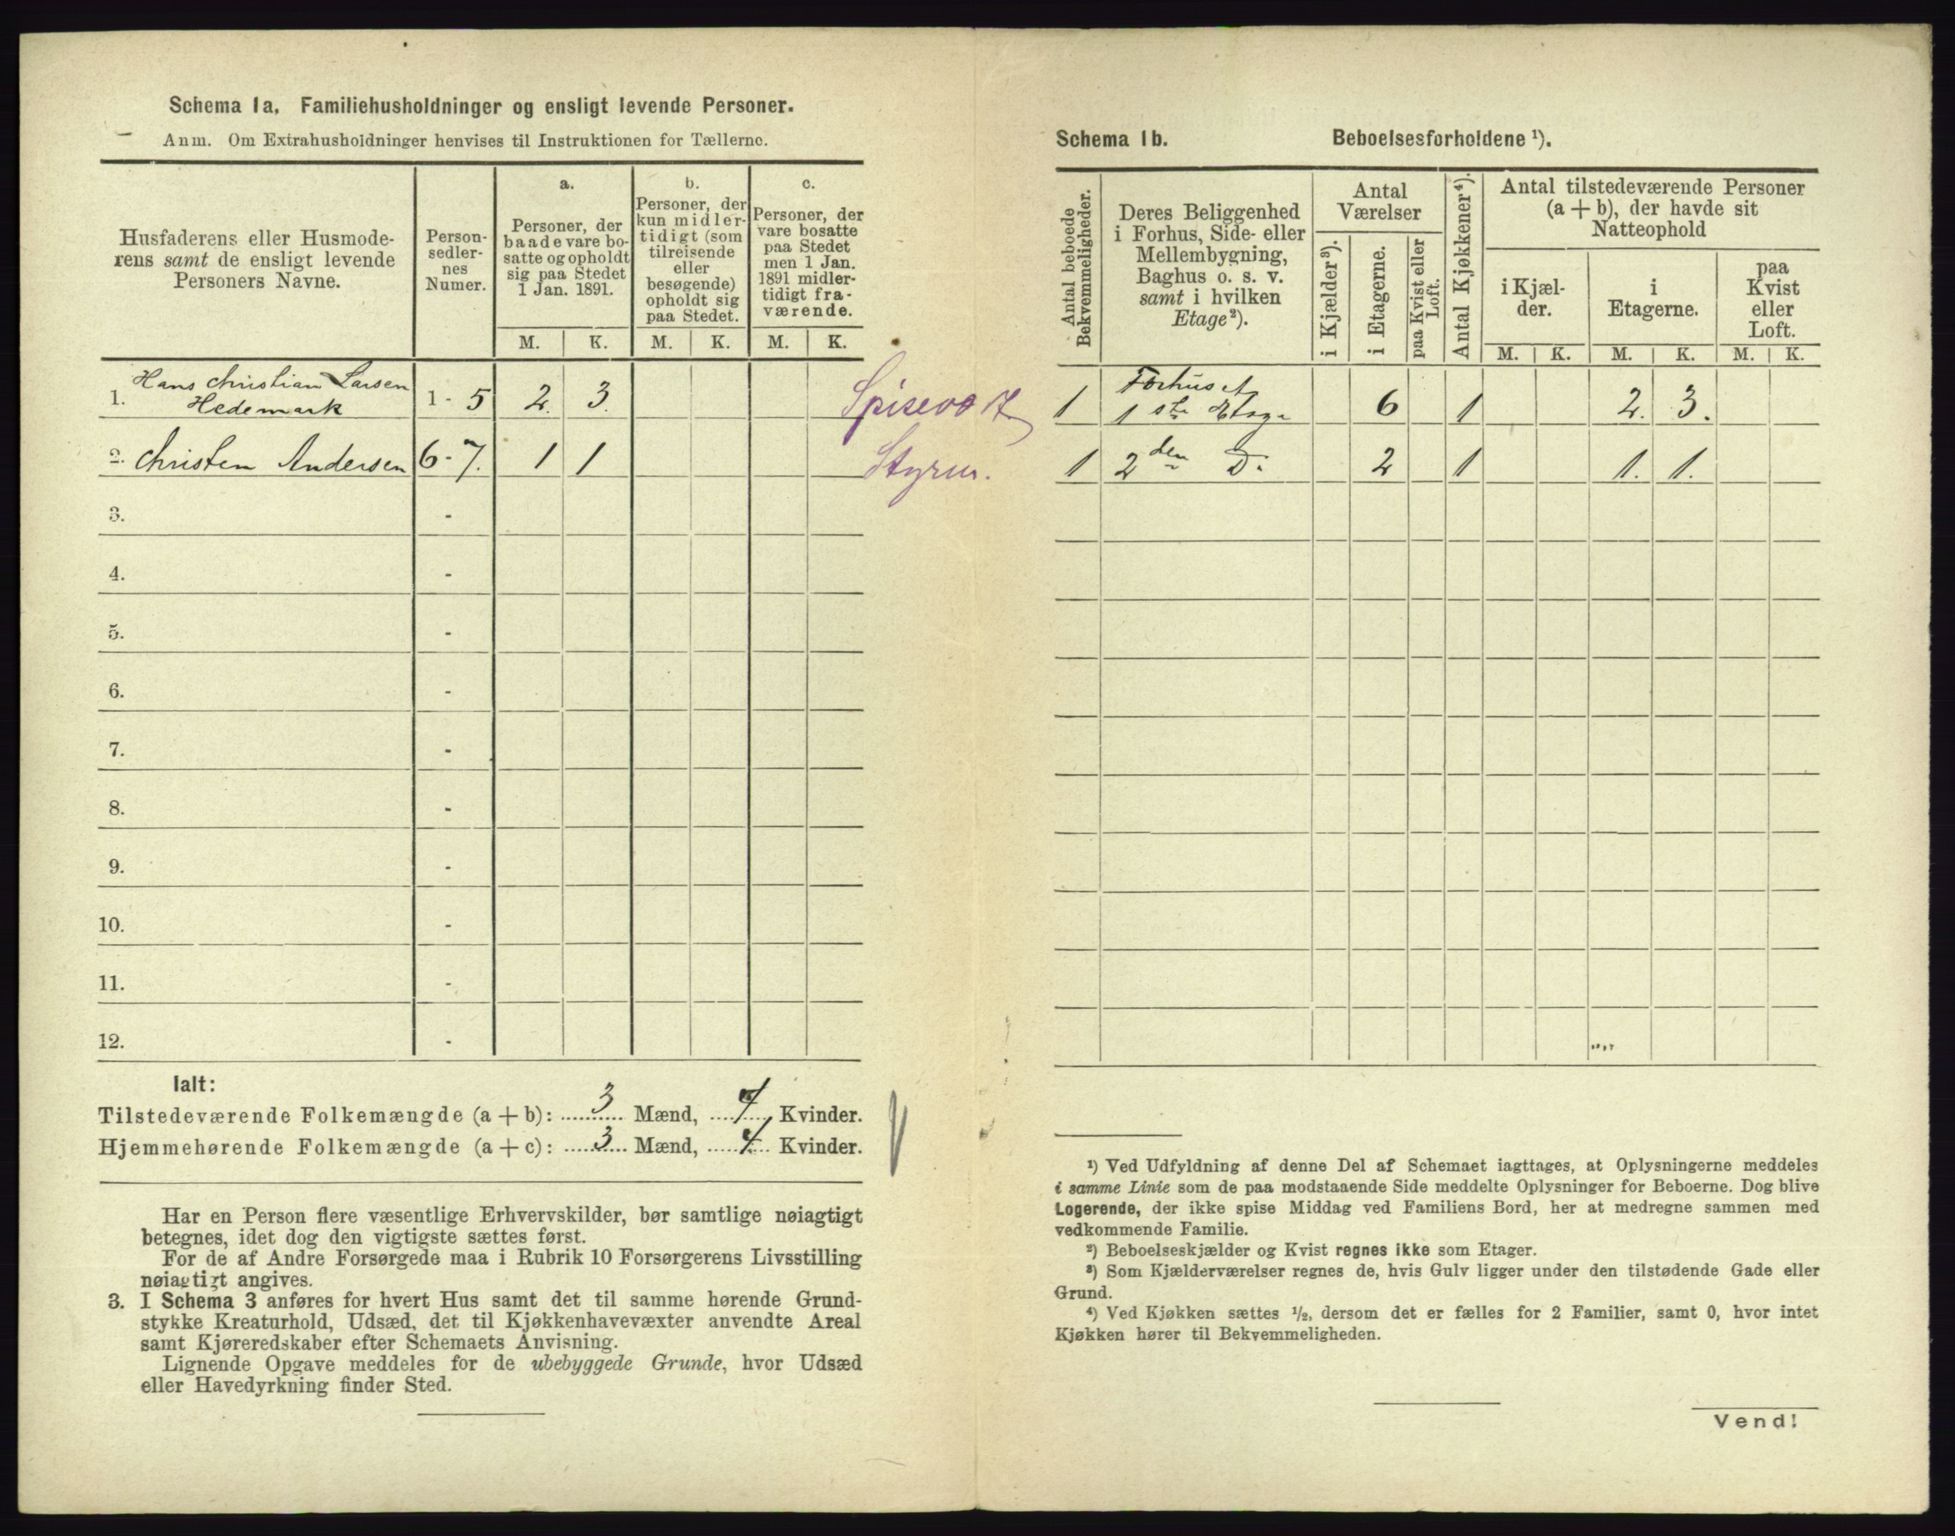 Schema 1a. Familiehusholdninger og ensligt levende Personer.
Anm. Om Extrahusholdninger henvises til Instruktionen for Tællerne.
Husfaderens eller Husmode-
rens samt de ensligt levende
Personers Navne.
Person-
sedler-
nes
Numer.
a.
Personer, der
baade vare bo-
satte og opholdt
sig paa Stedet
1 Jan. 1891.
b.
Personer, der
kun midler-
tidigt (som
tilreisende
eller
besøgende)
opholdt sig
paa Stedet.
c.
Personer, der
vare bosatte
paa Stedet
men 1 Jan.
1891 midler-
tidigt fra-
værende.
M. K. M. K. M. K.
1. Hans Christian Larsen
Hedemark 1 - 5 2. 3. Spisevært
2. Christen Andersen 6 - 7. 1 1 Styrm.
3. -
4. -
5. -
6. -
7. -
8. -
9. -
10. -
11. -
12. -
Ialt:
Tilstedeværende Folkemængde (a + b): 3 Mænd, 4 Kvinder.
Hjemmehørende Folkemængde (a + c): 3 Mænd, 4 Kvinder.
Har en Person flere væsentlige Erhvervskilder, bør samtlige nøiagtigt
betegnes, idet dog den vigtigste sættes først.
For de af Andre Forsørgede maa i Rubrik 10 Forsørgerens Livsstilling
nøiagtigt angives.
3. I Schema 3 anføres for hvert Hus samt det til samme hørende Grund-
stykke Kreaturhold, Udsæd, det til Kjøkkenhavevæxter anvendte Areal
samt Kjøreredskaber efter Schemaets Anvisning.
Lignende Opgave meddeles for de ubebyggede Grunde, hvor Udsæd
eller Havedyrkning finder Sted.
Schema 1b. Beboelsesforholdene ¹).
Antal beboede
Bekvemmeligheder.
Deres Beliggenhed
i Forhus, Side- eller
Mellembygning,
Baghus o. s. v.
samt i hvilken
Etage²).
Antal
Værelser
i Kjælder³).
i Etagerne.
paa Kvist eller
Loft.
Antal Kjøkkener⁴).
Antal tilstedeværende Personer
(a + b), der havde sit
Natteophold
i Kjæl-
der.
i
Etagerne.
paa
Kvist
eller
Loft.
M. K. M. K. M. K.
1 Forhuset
1ste Etage 6 1 2. 3.
1 2den D. 2 1 1. 1.
¹) Ved Udfyldning af denne Del af Schemaet iagttages, at Oplysningerne meddeles
i samme Linie som de paa modstaaende Side meddelte Oplysninger for Beboerne. Dog blive
Logerende, der ikke spise Middag ved Familiens Bord, her at medregne sammen med
vedkommende Familie.
²) Beboelseskjælder og Kvist regnes ikke som Etager.
³) Som Kjælderværelser regnes de, hvis Gulv ligger under den tilstødende Gade eller
Grund.
⁴) Ved Kjøkken sættes ¹/₂, dersom det er fælles for 2 Familier, samt 0, hvor intet
Kjøkken hører til Bekvemmeligheden.
Vend!